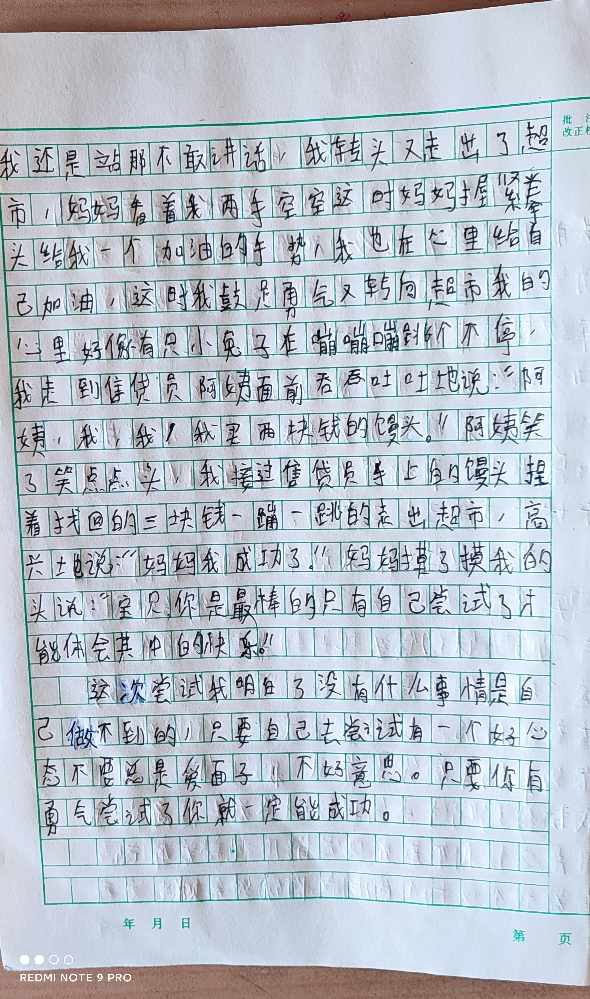 批 注
改正栏
我还是站那不敢讲话，我转头又走出了超
市，妈妈看着我两手空空这时妈妈握紧拳
头给我一个加油的手势，我也在心里给自
己加油，这时我鼓足勇气又转向超市我的
心里好像有只小兔子在嘣嘣嘣跳个不停，
我走到售货员阿姨面前吞吞吐吐地说：“阿
姨，我，我，我要两块钱的馒头。”阿姨笑
了笑点点头，我接过售货员手上的馒头捏
着找回的三块钱一蹦一跳的走出超市，高
兴地说：“妈妈我成功了。”妈妈摸了摸我的
头说：“宝贝你是最棒的只有自己尝试了才
能体会其中的快乐。”
这次尝试我明白了没有什么事情是自
己做不到的，只要自己去尝试有一个好心
态不要总是爱面子，不好意思。只要你有
勇气尝试了你就一定能成功。
年 月 日
第 页
REDMI NOTE 9 PRO